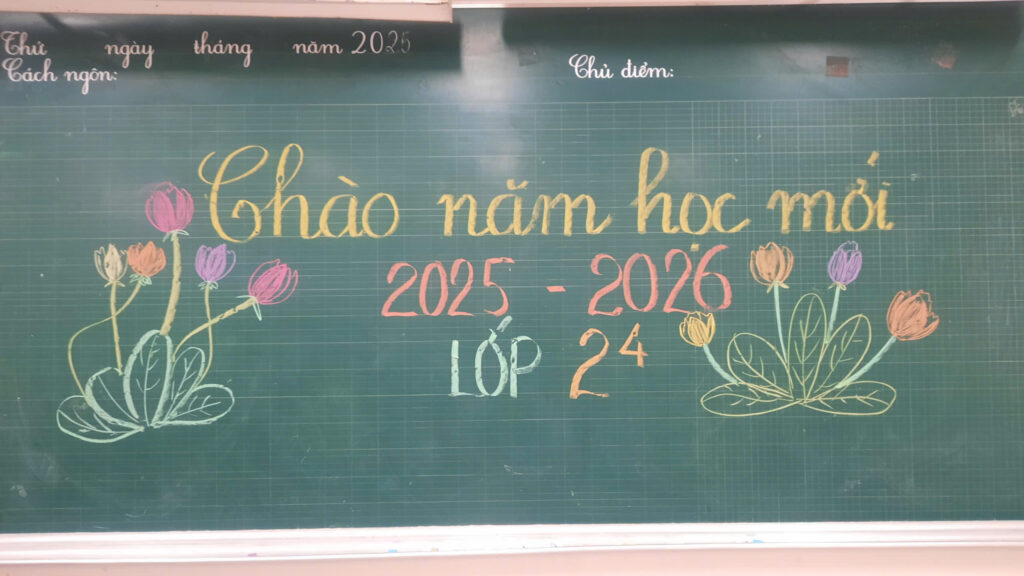 Thứ ngày tháng năm 2025
Cách ngôn:
Chủ điểm:
Chào năm học mới
2025 - 2026
LỚP 2⁴